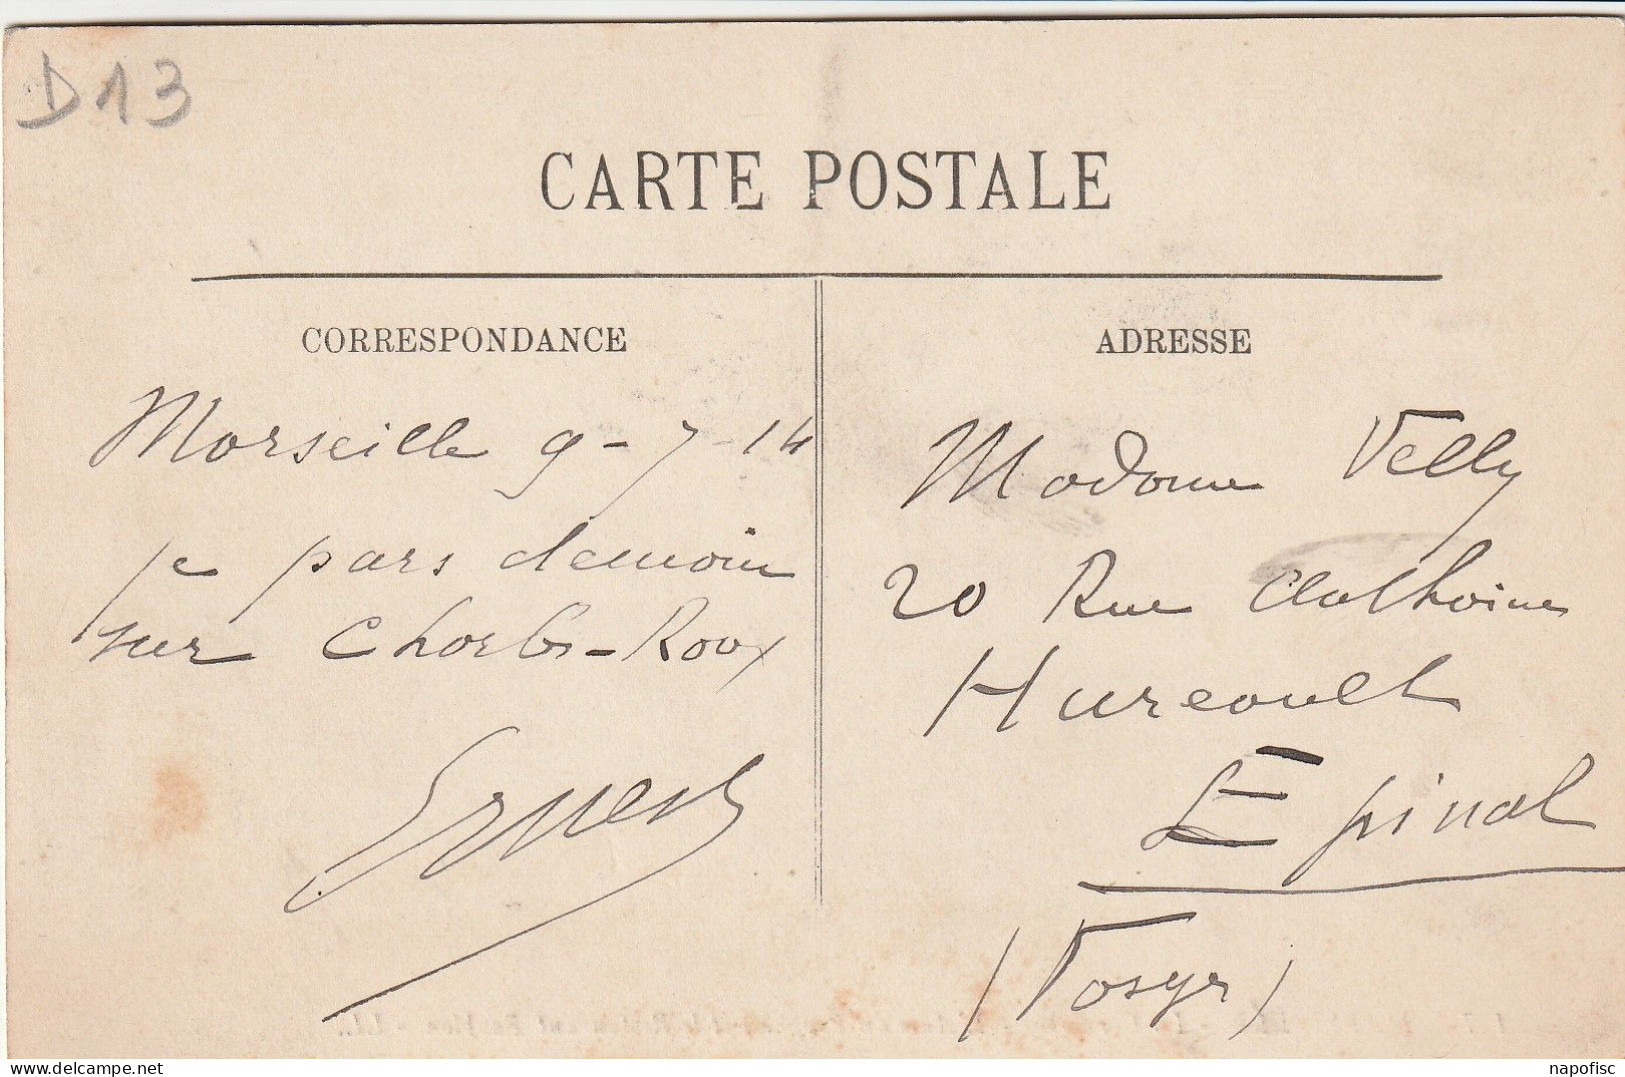 D13
CARTE POSTALE
CORRESPONDANCE
Marseille 9-7-14
je pars demain
sur Charles-Roux
Ernest
ADRESSE
Madame Velly
20 Rue
Hureault
Epinal
(Vosges)
delcampe.net
napofisc